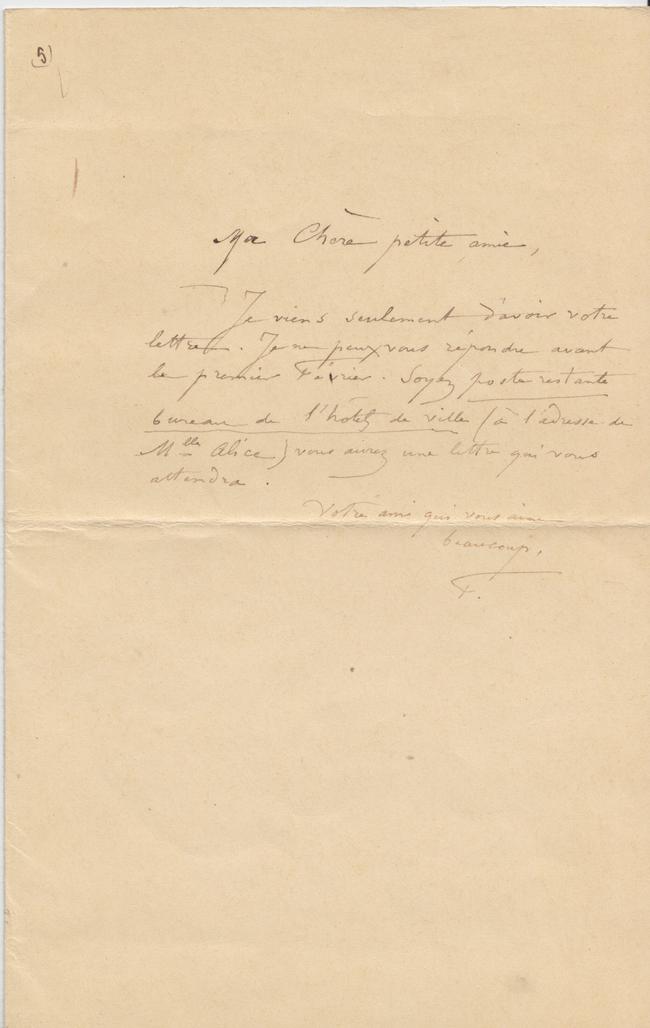 5
Ma Chère petite amie,
Je viens seulement d'avoir votre
lettre. Je ne peux vous répondre avant
le premier Février. Soyez poste restante
bureau de l'hôtel de ville (à l'adresse de
Mlle Alice) vous aurez une lettre qui vous
attendra.
Votre ami qui vous aime
beaucoup,
F.